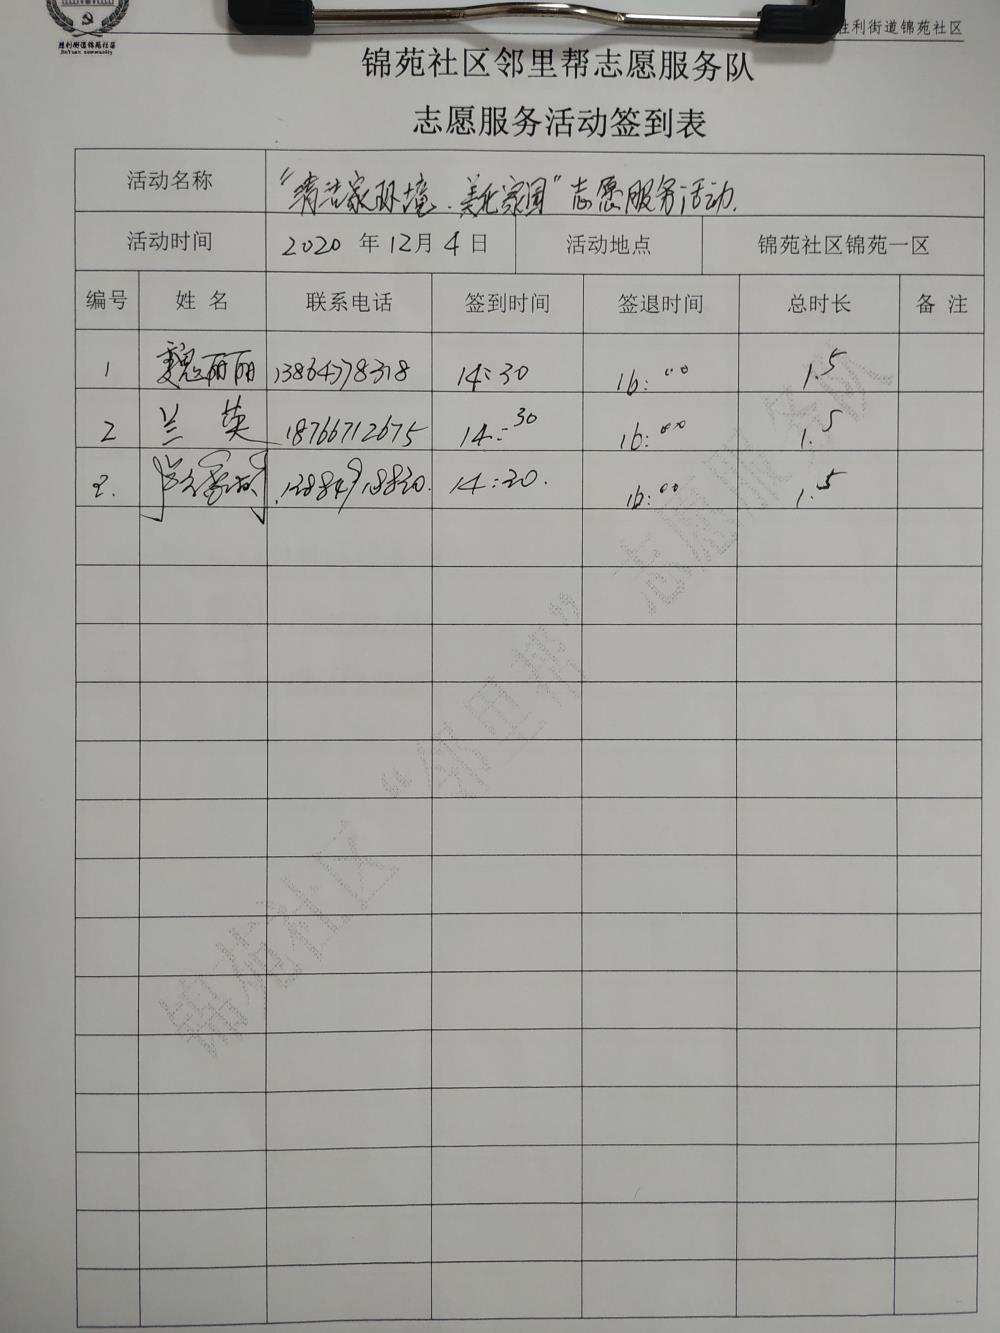 胜利街道锦苑社区
JinYuan community
胜利街道锦苑社区
锦苑社区邻里帮志愿服务队
志愿服务活动签到表
活动名称 “清洁家环境、美化家园”志愿服务活动.
活动时间 2020 年 12月 4 日 活动地点 锦苑社区锦苑一区
编号 姓 名 联系电话 签到时间 签退时间 总时长 备 注
1 魏丽丽 13864778318 14:30 16:00 1.5
2 兰 英 18766712675 14:30 16:00 1.5
14:20. 16:00 1.5
锦苑社区“邻里帮”志愿服务队